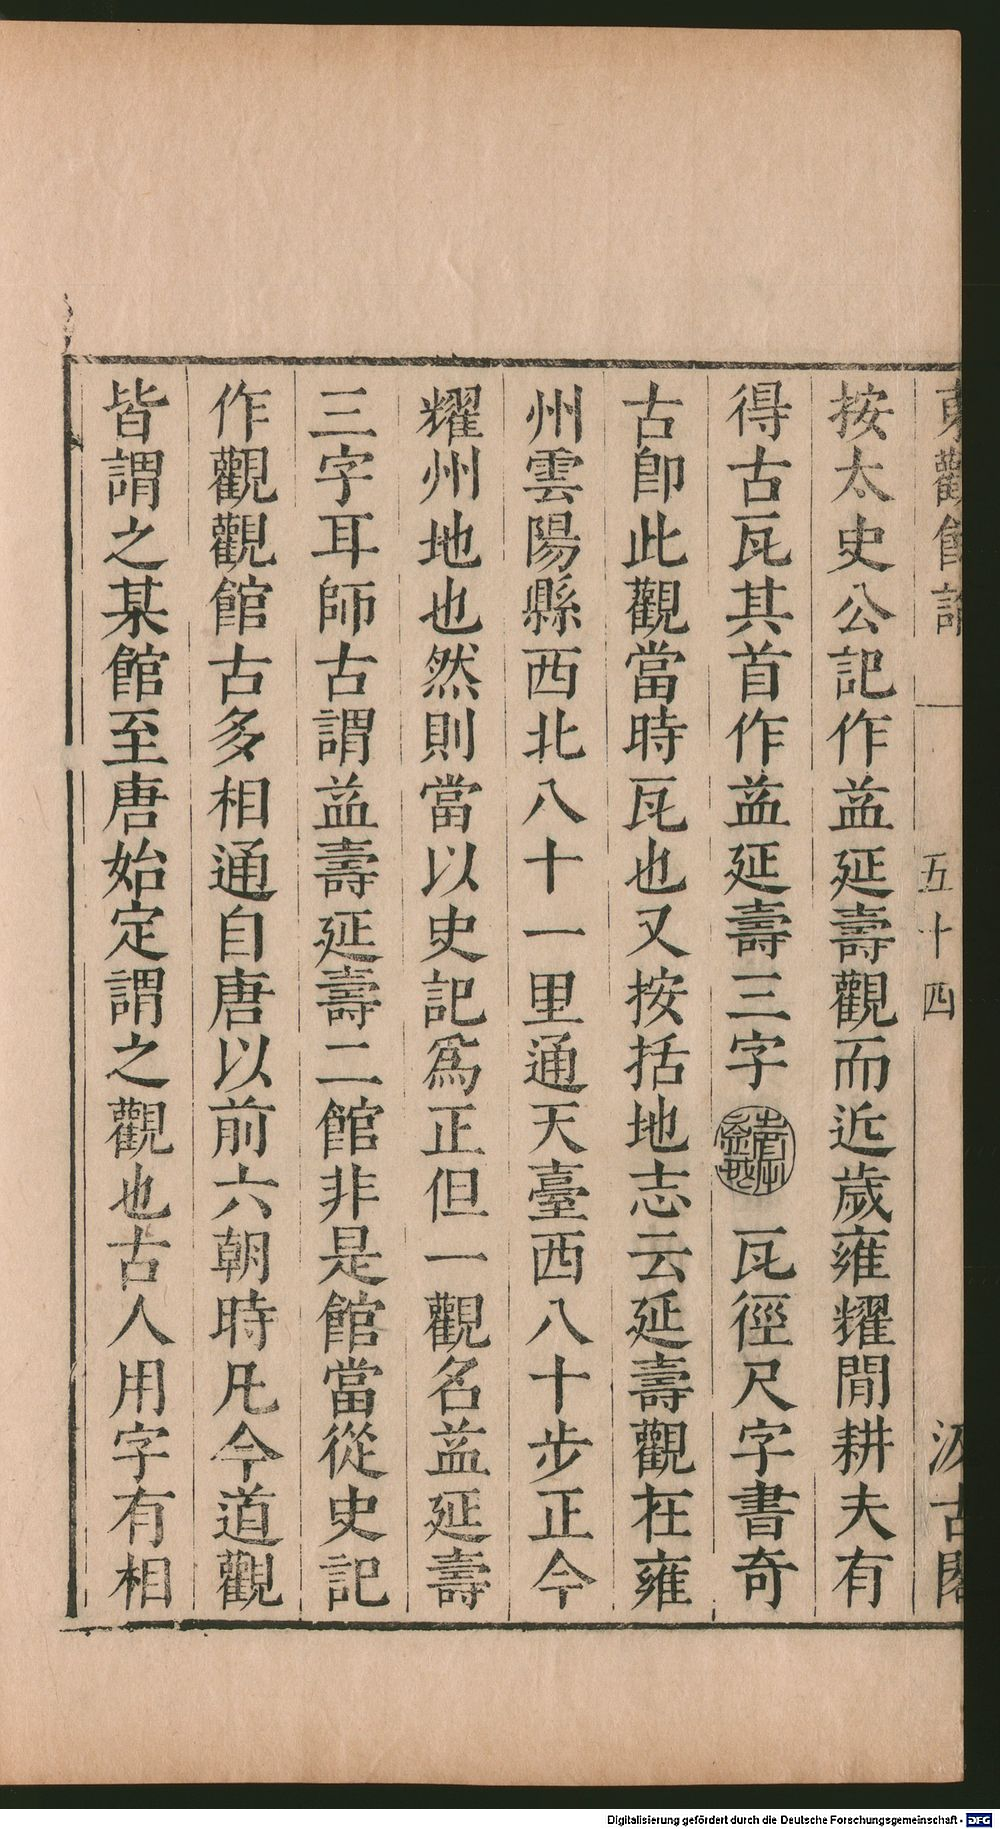 東觀餘論
五十四
汲古閣
按太史公記作益延壽觀而近歲雍耀閒耕夫有
得古瓦其首作益延壽三字瓦徑尺字書奇
古卽此觀當時瓦也又按括地志云延壽觀在雍
州雲陽縣西北八十一里通天臺西八十步正今
耀州地也然則當以史記爲正但一觀名益延壽
三字耳師古謂益壽延壽二館非是館當從史記
作觀觀館古多相通自唐以前六朝時凡今道觀
皆謂之某館至唐始定謂之觀也古人用字有相
Digitalisierung gefördert durch die Deutsche Forschungsgemeinschaft - DFG